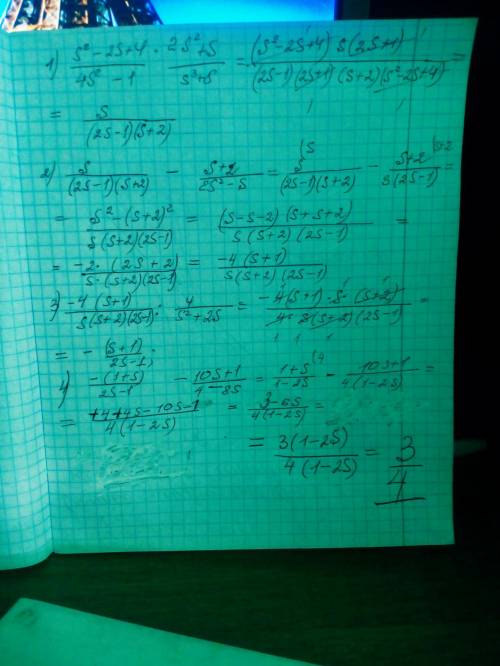 1) (s² - 2s + 4)/(4s² - 1) · (2s² + s)/(s³ + s) = ((s² - 2s + 4) s (2s + 1))/((2s - 1)(2s + 1)(s + 2)(s² - 2s + 4)) =
= s/((2s - 1)(s + 2))
2) s/((2s - 1)(s + 2)) - (s + 2)/(2s² - s) = s |s/((2s - 1)(s + 2)) - (s + 2) |s+2/(s(2s - 1)) =
= (s² - (s + 2)²)/(s(s + 2)(2s - 1)) = ((s - s - 2)(s + s + 2))/(s(s + 2)(2s - 1)) =
= (-2 · (2s + 2))/(s · (s + 2)(2s - 1)) = (-4(s + 1))/(s(s + 2)(2s - 1))
3) (-4(s + 1))/(s(s + 2)(2s - 1)) : 4/(s² + 2s) = (-4(s + 1) · s · (s + 2))/(4 · s(s + 2)(2s - 1)) =
= - (s + 1)/(2s - 1) ;
4) (-(1 + s))/(2s - 1) - (10s + 1)/(4 - 8s) = (1 + s) |4/(1 - 2s) - (10s + 1)/(4(1 - 2s)) =
= (+4 + 4s - 10s - 1)/(4(1 - 2s)) = (3 - 6s)/(4(1 - 2s)) =
= (3(1 - 2s))/(4(1 - 2s)) = 3/4